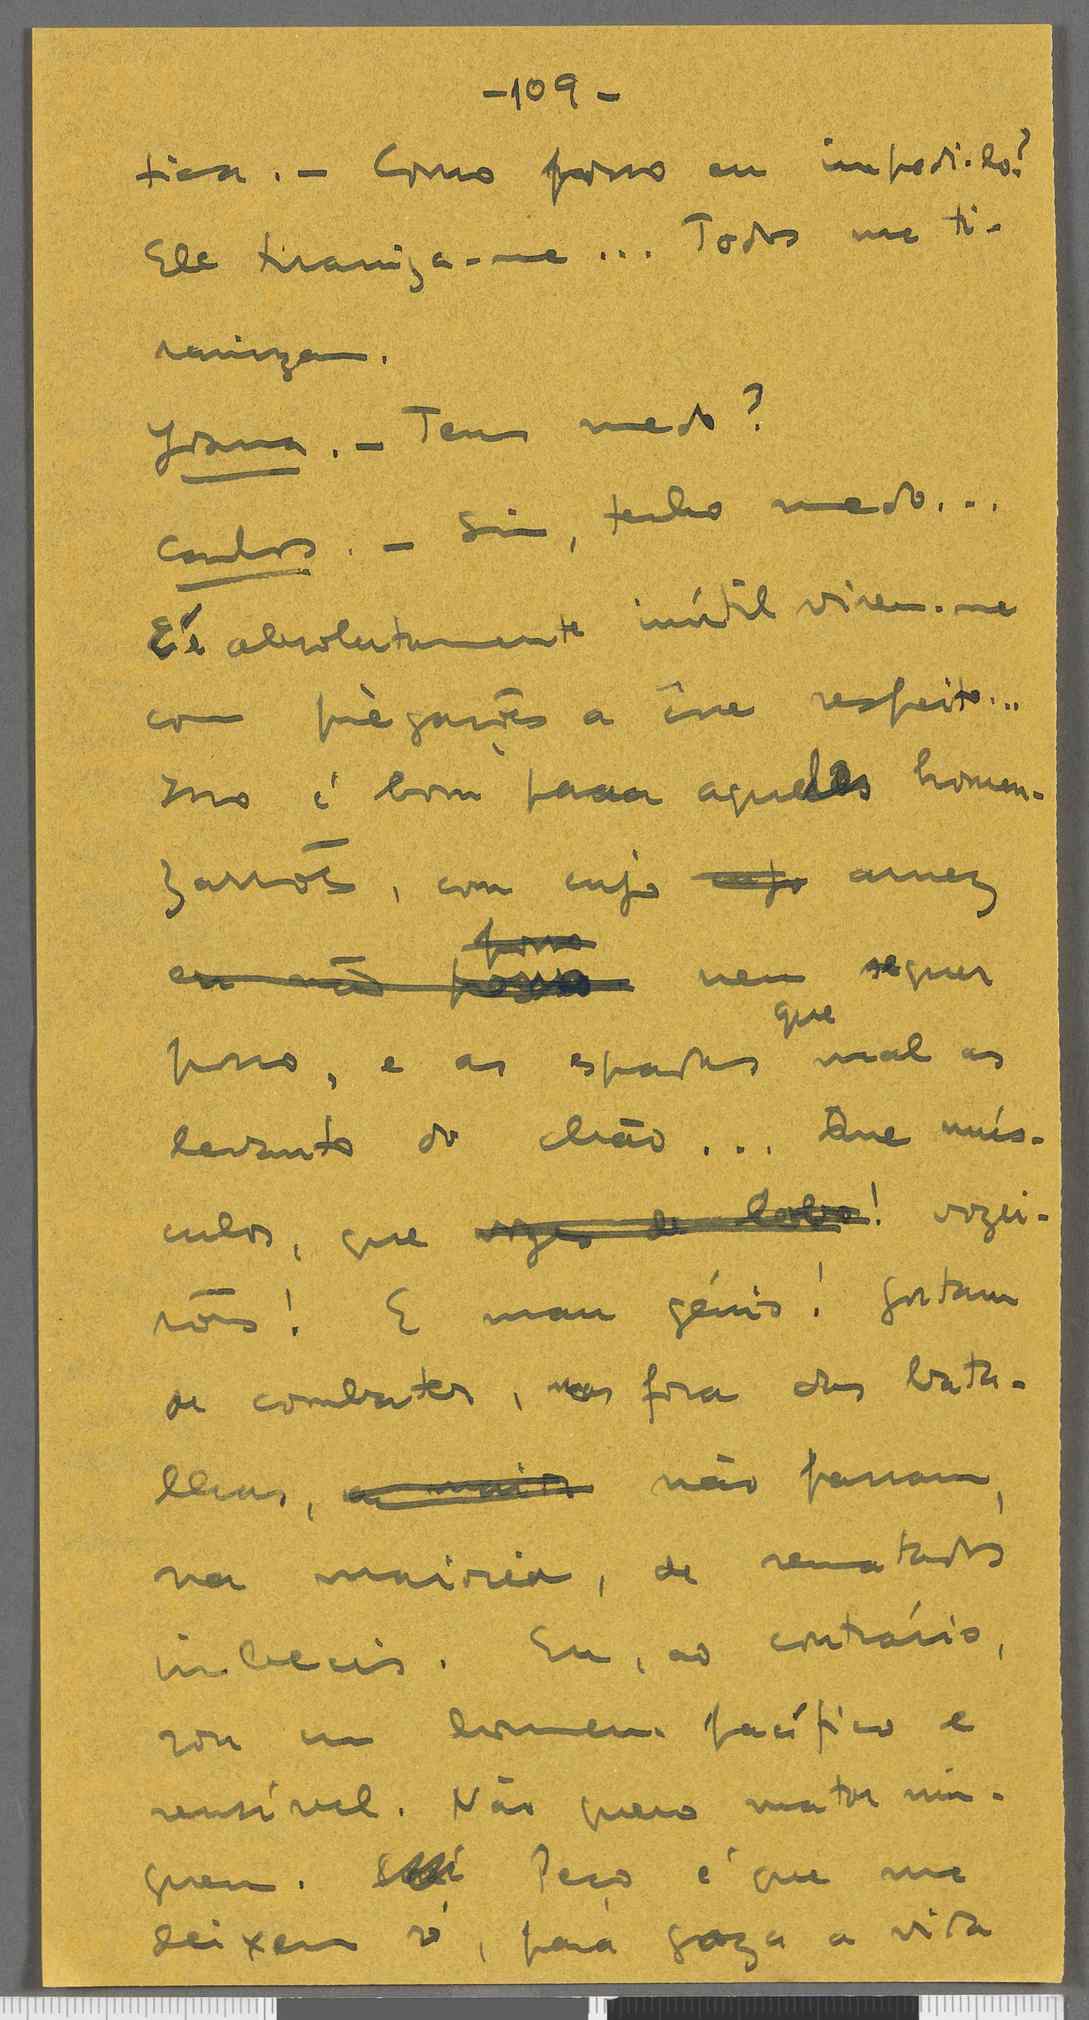 -109-
tica. - Como posso eu impedi-lo?
Ele tiraniza-me... Todos me ti-
ranizam.
Joana. - Tens medo?
Carlos. - Sim, tenho medo...
E é absolutamente inútil virem-me
com piègarices a êsse respeito...
Isso é bom para aqueles homen-
zarrões, com cujo cujo arnez
eu não posso posso nem sequer
posso, e as espadas que mal as
levanto do chão... Que mús-
culos, que vozes de lobo! vozei-
rões! E mau génio! Gostam
de combater, mas fora das bata-
lhas, a maior não passam,
na maioria, de rematados
imbecis. Eu, ao contrário,
sou um homem pacífico e
sensível. Não quero matar nin-
guem. Peço é que me
deixem só, para gozar a vida